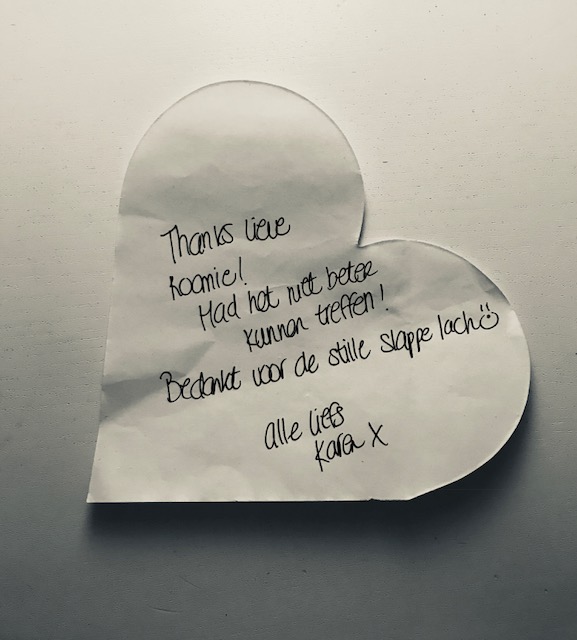 Thanks lieve
roomie!
Had het niet beter
kunnen treffen!
Bedankt voor de stille slappe lach
alle liefs
Karen X